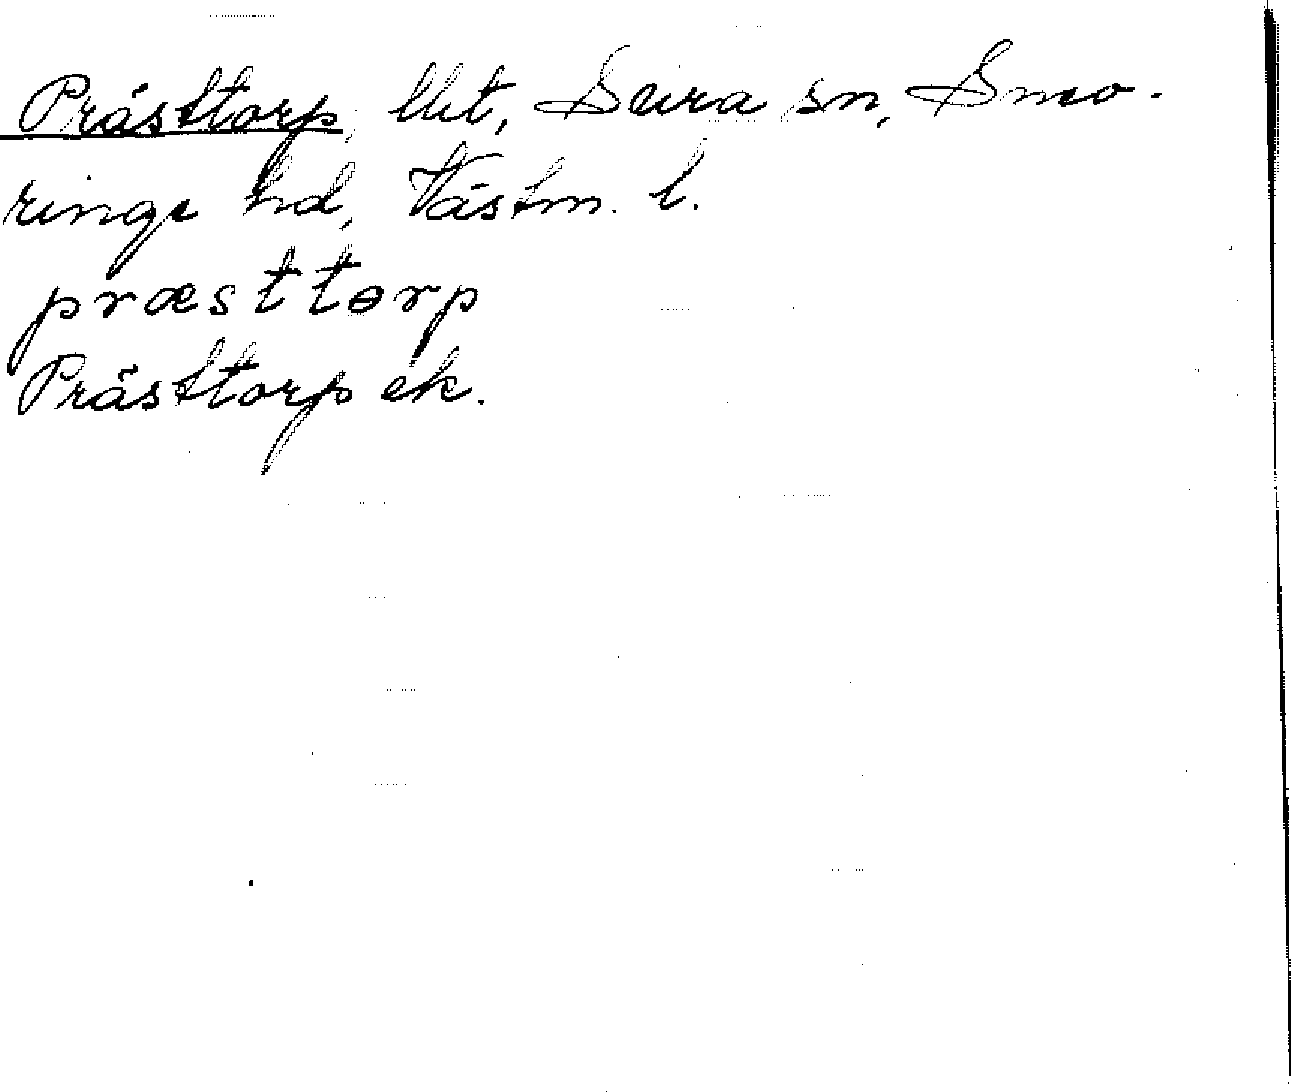 Prästtorp, lht, Sura sn, Snev-
ringe hd, Västm. l.
præsttɵrp
Prästtorp ek.